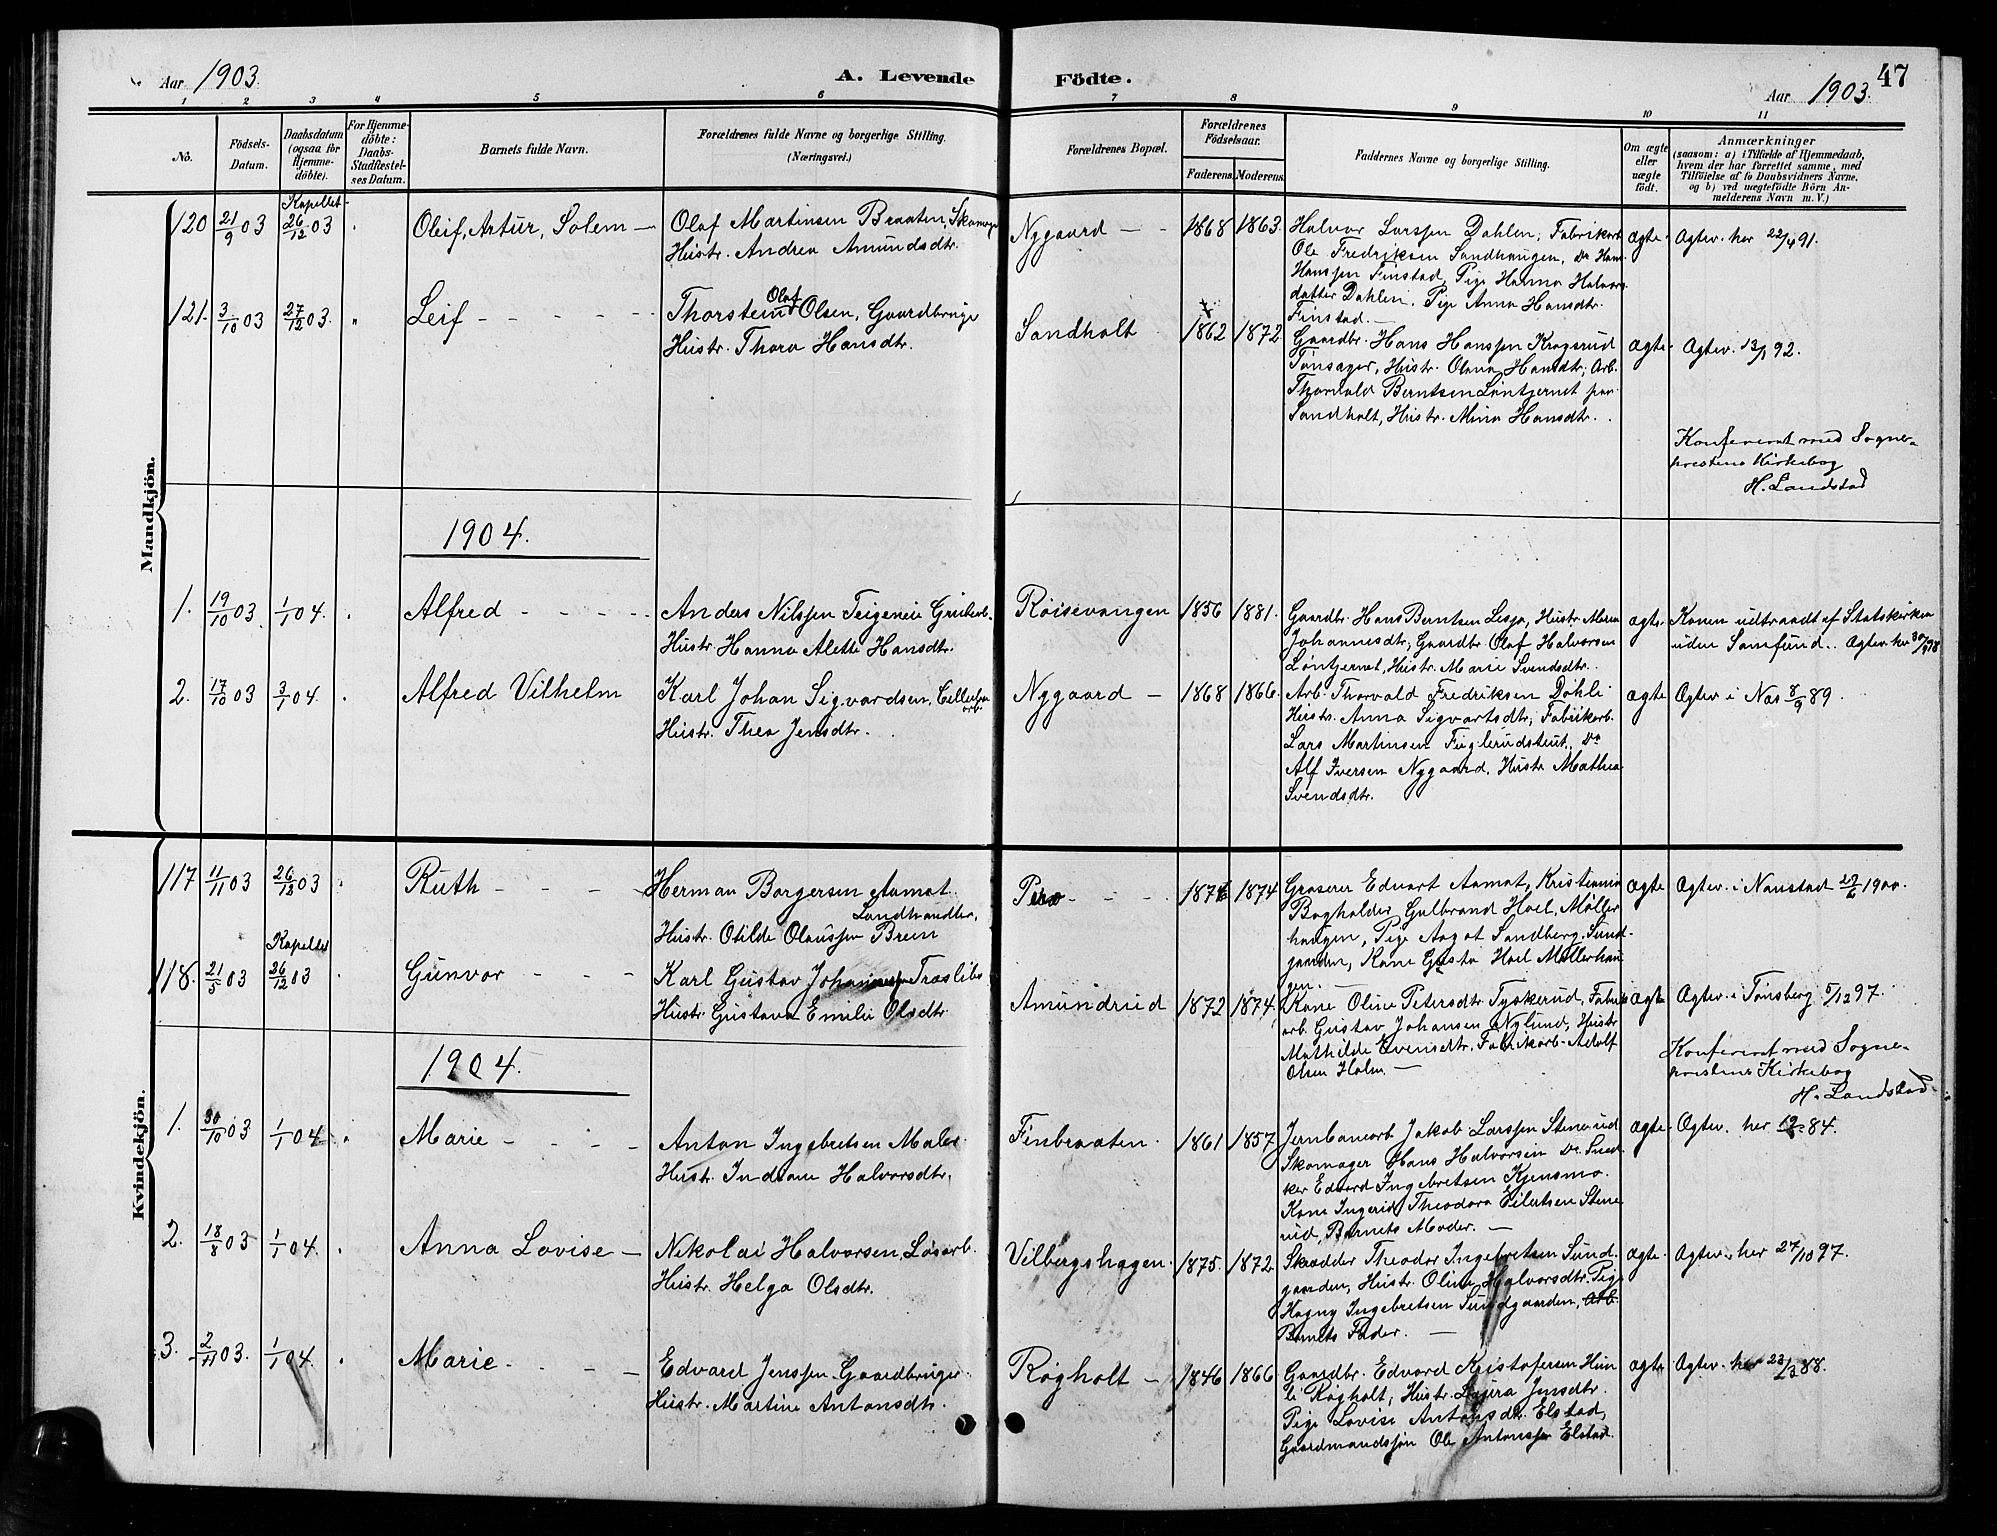 Aar 1903.
A. Levende Födte.
Aar 1903.
47
1 2 3 4 5 6 7 8 9 10 11
No.
Födsels-
Datum.
Daabsdatum
(ogsaa for
Hjemme-
döbte).
For Hjemme-
döbte:
Daabs-
Stadfæstel-
ses Datum.
Barnets fulde Navn.
Forældrenes fulde Navne og borgerlige Stilling.
(Næringsvei.)
Forældrenes Bopæl.
Forældrenes
Födselsaar.
Faderens. Moderens.
Faddernes Navne og borgerlige Stilling.
Om ægte
eller
uægte
födt.
Anmærkninger
(saasom: a) i Tilfælde af Hjemmedaab,
hvem der har forrettet samme, med
Tilföielse af to Daabsvidners Navne,
og b) ved uægtefödte Börn An-
melderens Navn m. V.)
Mandkjön.
Kapellet
120 21/9 03 26/12 03 "
Oleif, Artur, Solem
Olaf Martinsen Braaten, Skomager
Hustr. Andrea Amundsdtr.
Nygaard 1868 1863.
Halvor Larssen Dahlen, Fabrikarb
Ole Fredriksen Sandhaugen, Do Hans
Hanssen Finstad, Pige Hanna Halvors
datter Dahlen, Pige Anna Hansdtr.
Finstad.
ægte. Ægtev. her 22/4 91.
121. 3/10 03 27/12 03. "
Leif
Thorstein Olaf Olsen, Gaardbruger
Hustr. Thora Hansdtr.
Sandholt 1862 1872
Gaardbr. Hans Hanssen Kragsrud
Tønsager, Hustr. Olava Hansdtr, Arb.
Thorvald Berntsen Løntjernet paa
Sandholt, Hustr. Mina Hansdtr.
ægte. Ægtev. 13/1 92.
Konfereret med Sogne-
prestens Kirkebog
H. Landstad
1904.
1. 19/10 03. 1/1 04. "
Alfred
Anders Nilssen Teigeneie Grubearb.
Hustr. Hanna Alette Hansdtr.
Røisevangen 1856 1881.
Gaardbr. Hans Berntsen Lesja, Hustr. Maren
Johannesdtr, Gaardbr Olaf Halvorsen
Løntjernet, Hustr. Marie Svendsdtr.
ægte. Konen udtraadt af Statskirken
uden Samfund. Ægtev. her
2. 17/10 03 3/1 04.
Alfred Vilhelm
Karl Johan Sigvardsen,
arb.
Hustr. Thea Jensdtr.
Nygaard 1868 1866.
Arb. Thorvald Fredriksen Døhli
Hustr. Anna Sigvartsdtr, Fabrikarb.
Lars Martinsen Fuglerudstuut, Do
Alf Iversen Nygaard, Hustr Mathea
Svendsdtr.
ægte Ægtev i Næs 8/9 89.
Kvindekjön.
117 11/11 03 26/12 03
Ruth
Herman Borgersen Aamot.
Landhandler,
Hustr. Otilde Olaussen Breen
1874 1874
Groserer Edvart Aamot, Kristiania
Bogholder Gulbrand Hoel, Møller
haugen, Pige Aagot Sandberg, Sund-
gaarden, Kone Gusta Hoel Møllerhau
gen.
ægte Ægtev. i Nannstad 1900.
Kapellet
118. 21/5 03 26/12 03
Gunvor
Karl Gustav Johannessen Træsliber
Hustr. Gustava Emilie Olsdtr.
Amundrud 1872 1874.
Kone Oline Petersdtr Tyskerud, Fabrik
arb. Gustav Johansen Nylund, Hustr
Mathilde Evensdtr, Fabrikarb. Adolf
Olsen Holm.
ægte Ægtev. i Tønsberg 5/12 97.
Konfereret med Sogne-
prestens Kirkebog
H. Landstad
1904.
1. 30/10 03 1/1 04
Marie
Anton Ingebretsen Maler.
Hustr. Indiane Halvorsdtr.
Finbraaten. 1861 1857
Jernbanearb Jakob Larssen Stenerud
Skomager Hans Halvorsen Do. Sned
ker Edvard Ingebretsen Kjensmo.
Kone Ingerid Theodora Eilertsen Stene
rud, Barnets Moder.
ægte Ægtev. her 84.
2. 18/8 03 1/1 04.
Anna Lovise
Nikolai Halvorsen, Løsarb.
Hustr. Helga Olsdtr.
Vilbergshagen. 1875. 1872
Skrædder Theodor Ingebretsen Sund-
gaarden, Hustr. Oline Halvorsdtr. Pige
Hagny Ingebretsen Sundgaarden, Arb.
Barnets Fader.
ægte. Ægtev. her 24/10 97.
3. 2/11 03. 1/1 04.
Marie
Edvard Jenssen Gaardbruger
Hustr. Martine Antonsdtr.
Røgholt 1846 1866
Gaardbr. Edvard Kristofersen Hun
li Røgholt, Hustr. Laura Jensdtr.
Pige Lovise Antonsdtr. Elstad,
Gaardmandssøn Ole Antonssen Elstad.
ægte Ægtev. her 23/3 88.